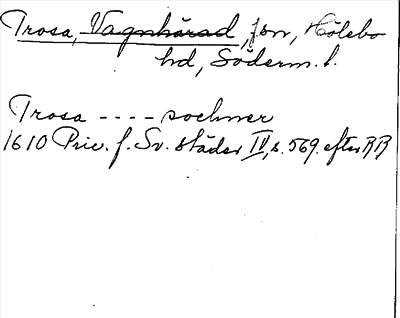 Trosa, Vagnhärad, fsn, Hölebo
hd, Söderm. l.
Trosa ---- sochner
1610 Priv. f. Sv. städer IV, s. 569. efter RR